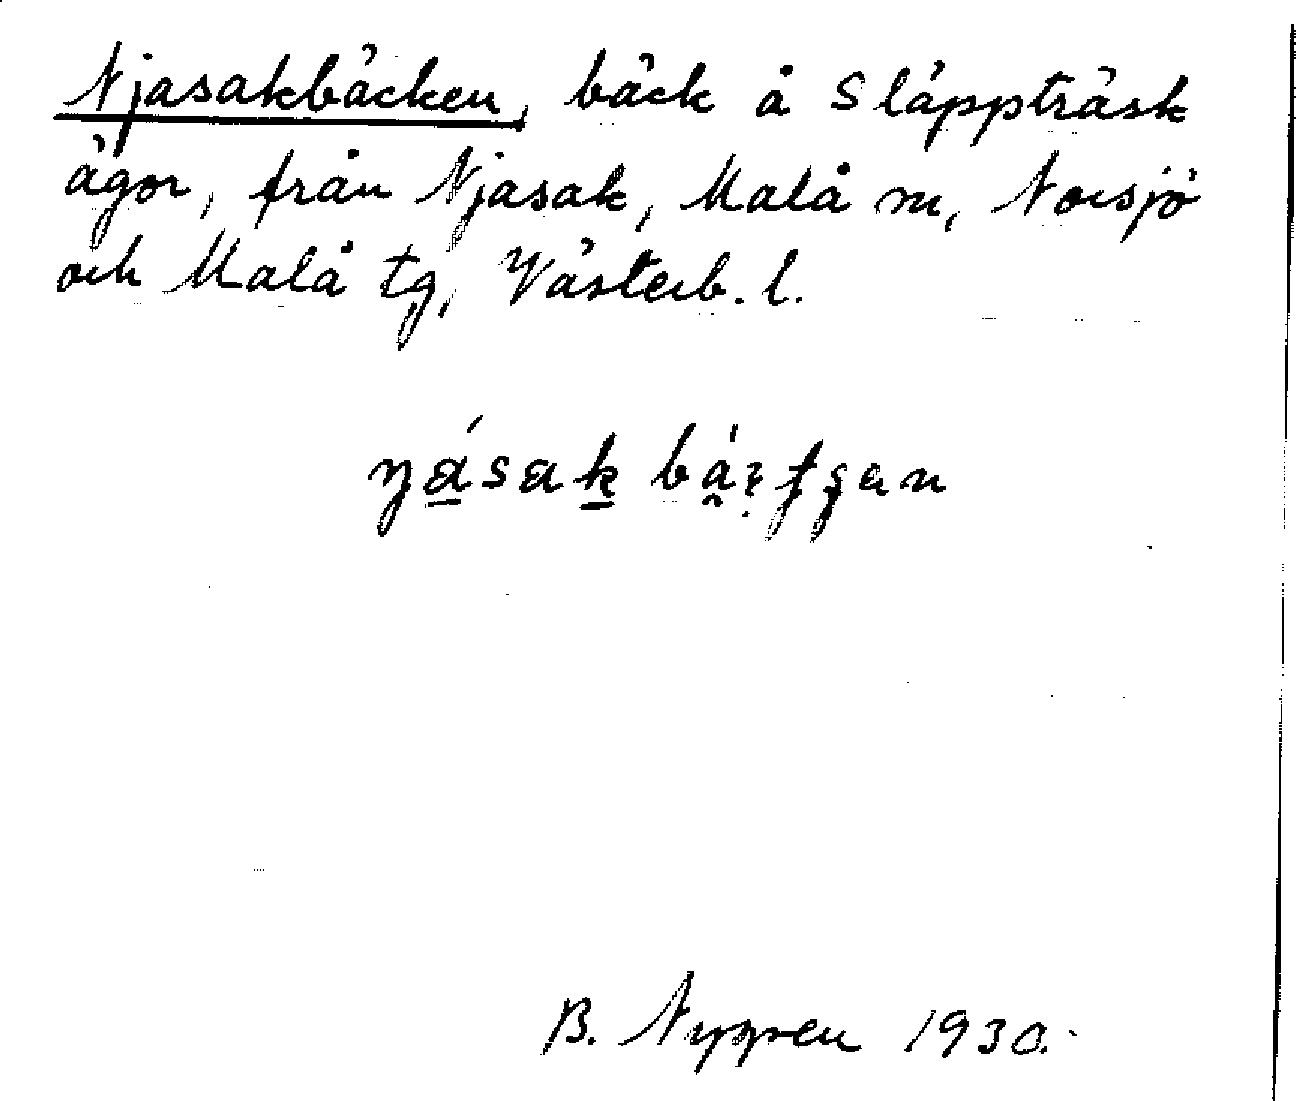 Njasakbäcken, bäck å Släppträsk
ägor, från Njasak, Malå sn, Norsjö
och Malå tg, Västerb. l.
B. Nygren 1930.